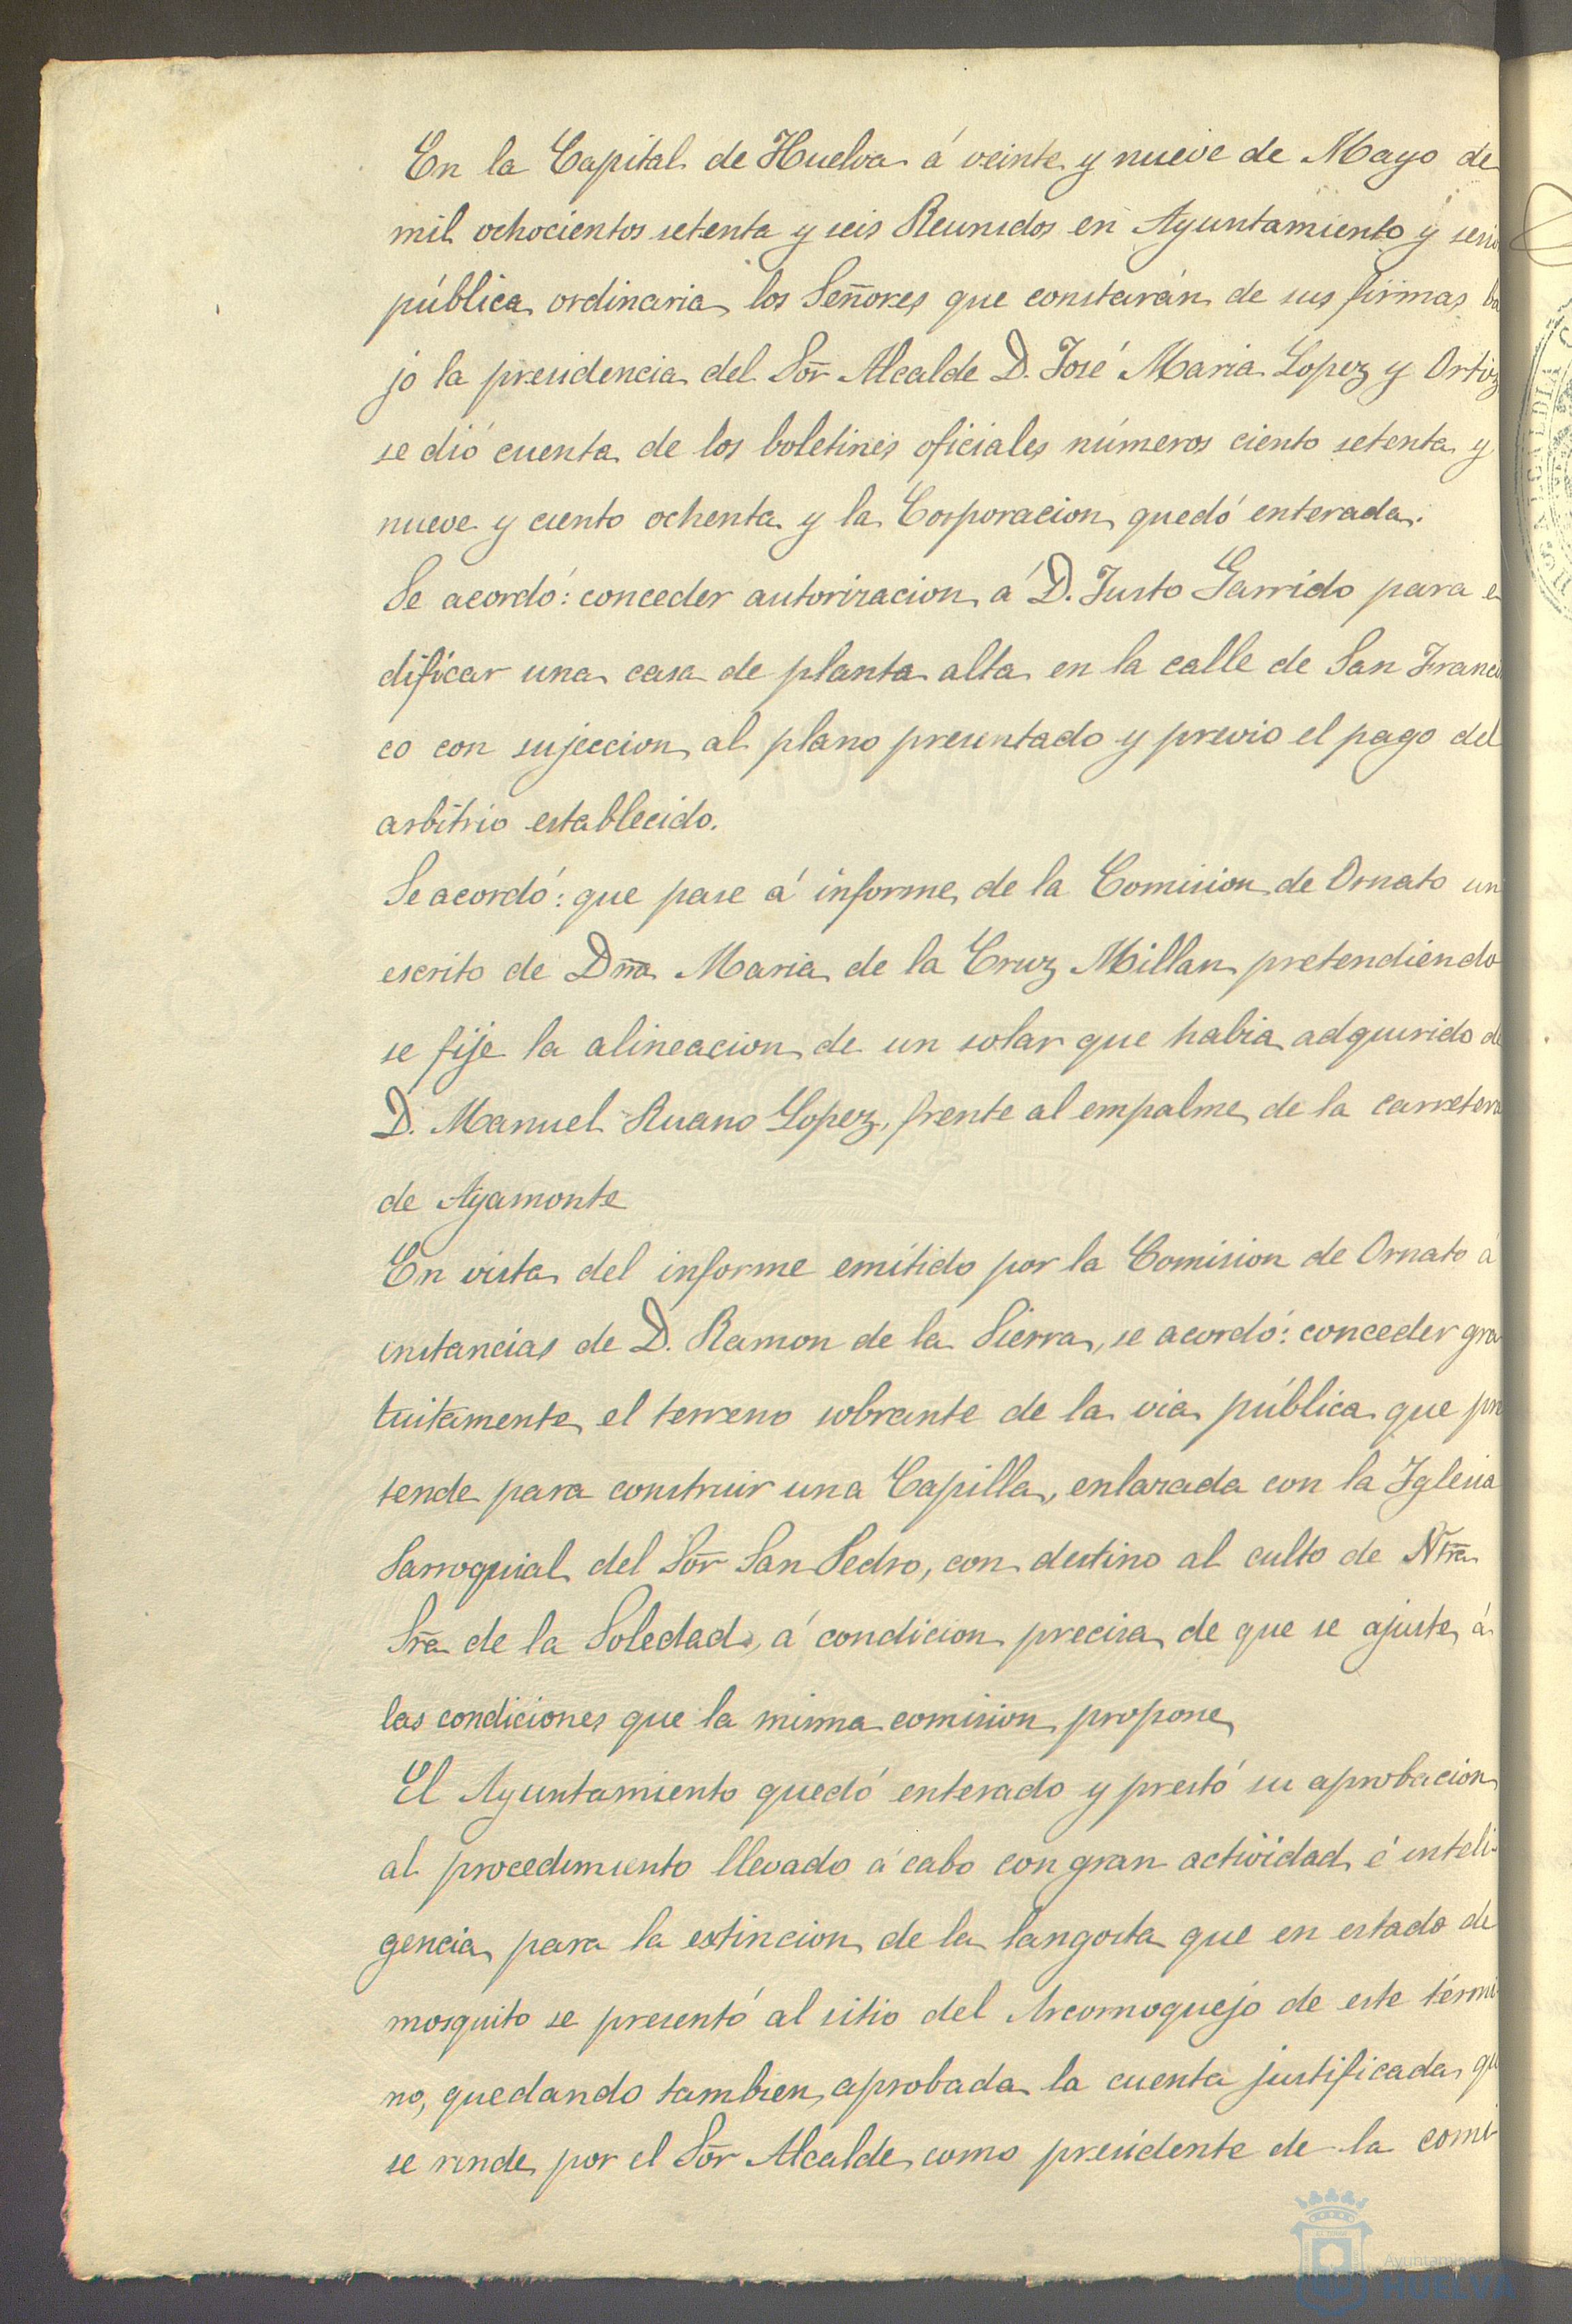 En la Capital de Huelva á veinte y nueve de Mayo de
mil ochocientos setenta y seis Reunidos en Ayuntamiento y sesio
pública ordinaria los Señores que constarán de sus firmas ba
jo la presidencia del Sõr Alcalde D. José Maria Lopez y Ortiz
se dió cuenta de los boletines oficiales números ciento setenta y
nueve y ciento ochenta y la Corporacion quedó enterada.
Se acordó: conceder autorizacion á D. Justo Garrido para e
dificar una casa de planta alta en la calle de San Francis
co con sujeccion al plano presentado y previo el pago del
arbitrio establecido.
Se acordó: que pase á informe de la Comision de Ornato un
escrito de Dña Maria de la Cruz Millan pretendiendo
se fije la alineacion de un solar que habia adquirido de
D. Manuel Ruano Lopez, frente al empalme de la carretera
de Ayamonte
En vista del informe emitido por la Comision de Ornato á
instancias de D. Ramon de la Sierra, se acordó: conceder gra
tuitamente el terreno sobrante de la via pública que pre
tende para construir una Capilla, enlazada con la Iglesia
Parroquial del Sõr San Pedro, con destino al culto de Ntra
Sra de la Soledad, á condicion precisa de que se ajuste á
las condiciones que la misma comision propone
El Ayuntamiento quedó enterado y prestó su aprobacion
al procedimiento llevado á cabo con gran actividad é inteli-
gencia para la estincion de la langosta que en estado de
mosquito se presentó al sitio del Arcornoquejo de este térmi-
no, quedando tambien aprobada la cuenta justificada qu
se rinde por el Sõr Alcalde como presidente de la comi-
HUELVA